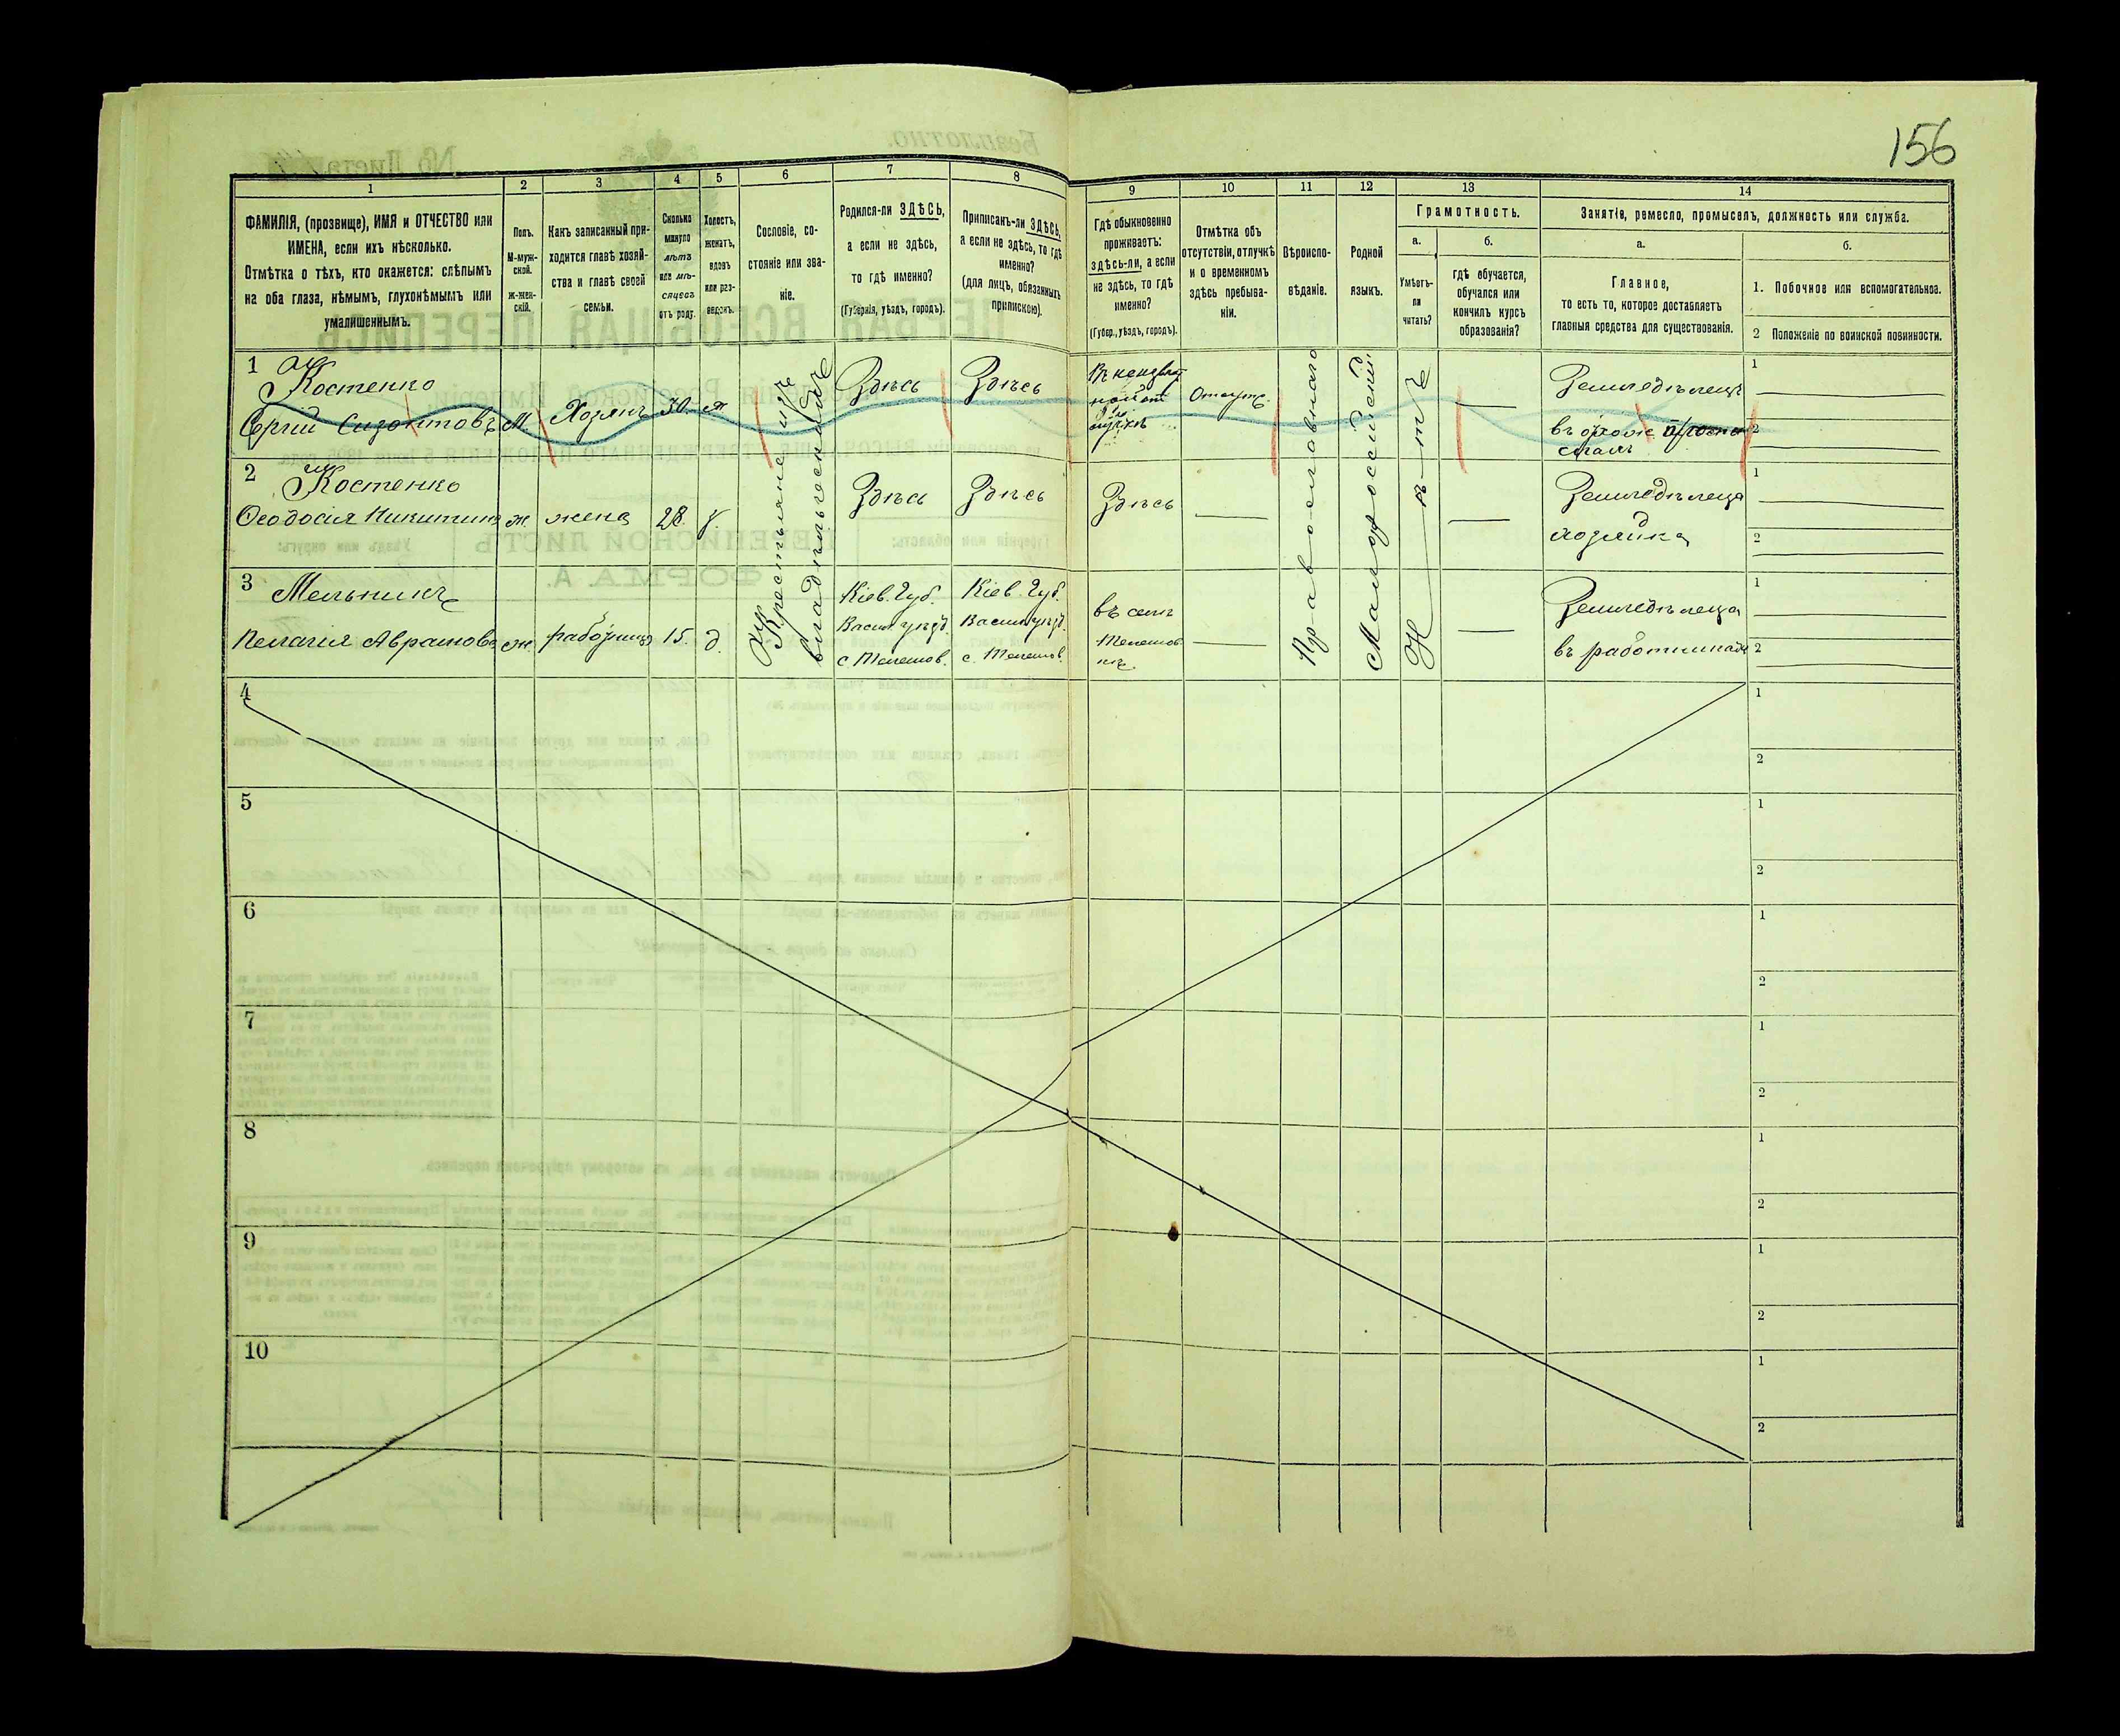 156
1
2
3
4
5
6
7
8
9
10
11
12
13
14
ФАМИЛІЯ, (прозвище), ИМЯ и ОТЧЕСТВО или
ИМЕНА, если ихъ нѣсколько.
Отмѣтка о тѣхъ, кто окажется: слѣпымъ
на оба глаза, нѣмымъ, глухонѣмымъ или
умалишеннымъ.
Полъ.
М-муж-
ской.
ж-жен-
скій.
Какъ записанный при-
ходится главѣ хозяй-
ства и главѣ своей
семьи.
Сколько
минуло
лѣтъ
или мѣ-
сяцевъ
отъ роду.
Холостъ,
женатъ,
вдовъ
или раз-
веденъ.
Сословіе, со-
стояніе или зва-
ніе.
Родился-ли ЗДѢСЬ,
а если не здѣсь,
то гдѣ именно?
(Губернія, уѣздъ, городъ).
Приписанъ-ли ЗДѢСЬ,
а если не здѣсь, то гдѣ
именно?
(для лицъ, обязанныхъ
припискою).
Гдѣ обыкновенно
проживаетъ:
здѣсь-ли, а если
не здѣсь, то гдѣ
именно?
(Губер., уѣздъ, городъ).
Отмѣтка объ
отсутствіи, отлучкѣ
и о временномъ
здѣсь пребыва-
ніи.
Вѣроиспо-
вѣданіе.
Родной
языкъ.
Грамотность.
а.
б.
Умѣетъ-
ли
читать?
гдѣ обучается,
обучался или
кончилъ курсъ
образованія?
Занятіе, ремесло, промыселъ, должность или служба.
а.
б.
Главное,
то есть то, которое доставляетъ
главныя средства для существованія.
1. Побочное или вспомогательное.
2 Положеніе по воинской повинности.
1
Костенко
Сергій
М
Хозяинъ
30
Здѣсь
Здѣсь
Отсутс.
Земледѣлецъ
1
2
2
Костенко
Ѳеодосія Никитина
ж
жена
28
з.
Здѣсь
Здѣсь
Здѣсь
Земледѣлица
хозяйка
1
2
3
Мельникъ
Пелагія Аврамова
ж
работница
15.
д.
Кіев. Губ.
Васил уѣзд.
Кіев. Губ.
Васил уѣзд.
въ селѣ
Земледѣлица
въ работницахъ
1
2
Крестьяне изъ
владѣльческихъ
Православнаго
Малороссійскій
Нѣтъ
4
1
2
5
1
2
6
1
2
7
1
2
8
1
2
9
1
2
10
1
2